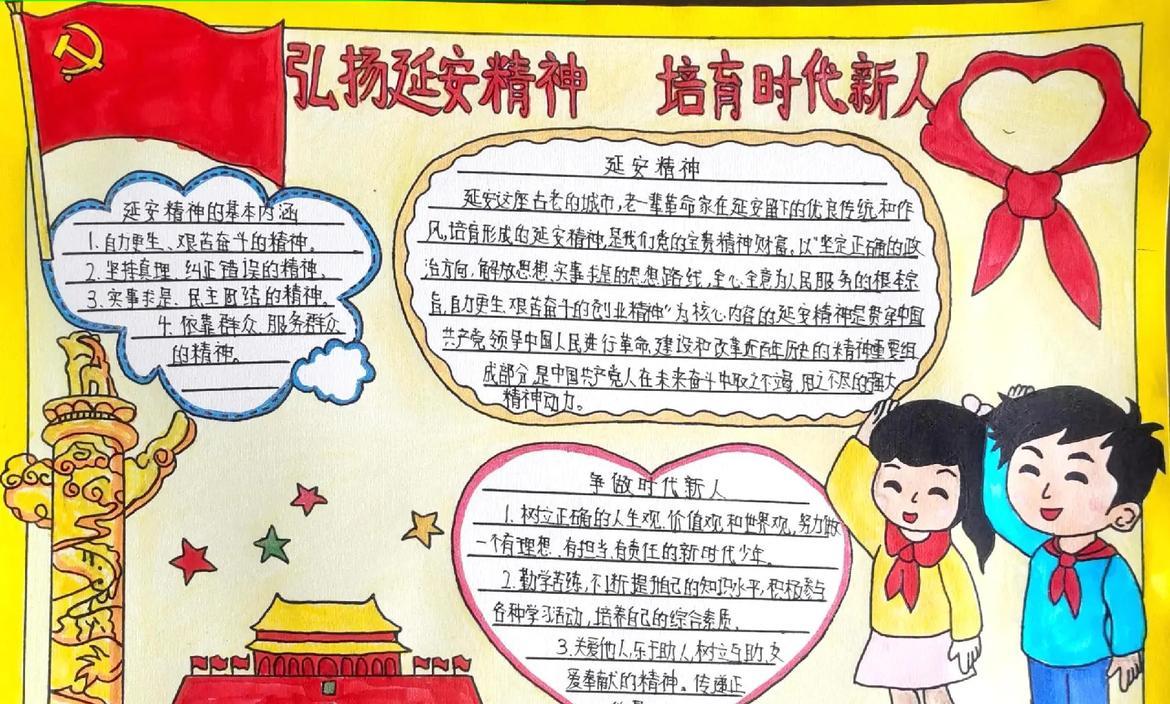 弘扬延安精神 培育时代新人
延安精神的基本内涵
1.自力更生、艰苦奋斗的精神。
2.坚持真理、纠正错误的精神。
3.实事求是、民主团结的精神。
4.依靠群众、服务群众
的精神。
延安精神
延安这座古老的城市,老一辈革命家在延安留下的优良传统和作
风,培育形成的延安精神,是我们党的宝贵精神财富。以"坚定正确的政
治方向,解放思想、实事求是的思想路线,全心全意为人民服务的根本宗
旨,自力更生、艰苦奋斗的创业精神"为核心内容的延安精神是贯穿中国
共产党领导中国人民进行革命、建设和改革近百年历史的精神重要组
成部分,是中国共产党人在未来奋斗中取之不竭、用之不尽的强大
精神动力。
争做时代新人
1.树立正确的人生观、价值观和世界观,努力做
一个有理想、有担当、有责任的新时代少年。
2.勤学苦练,不断提升自己的知识水平,积极参与
各种学习活动,培养自己的综合素质。
3.关爱他人,乐于助人,树立互助,友
爱奉献的精神。传递正